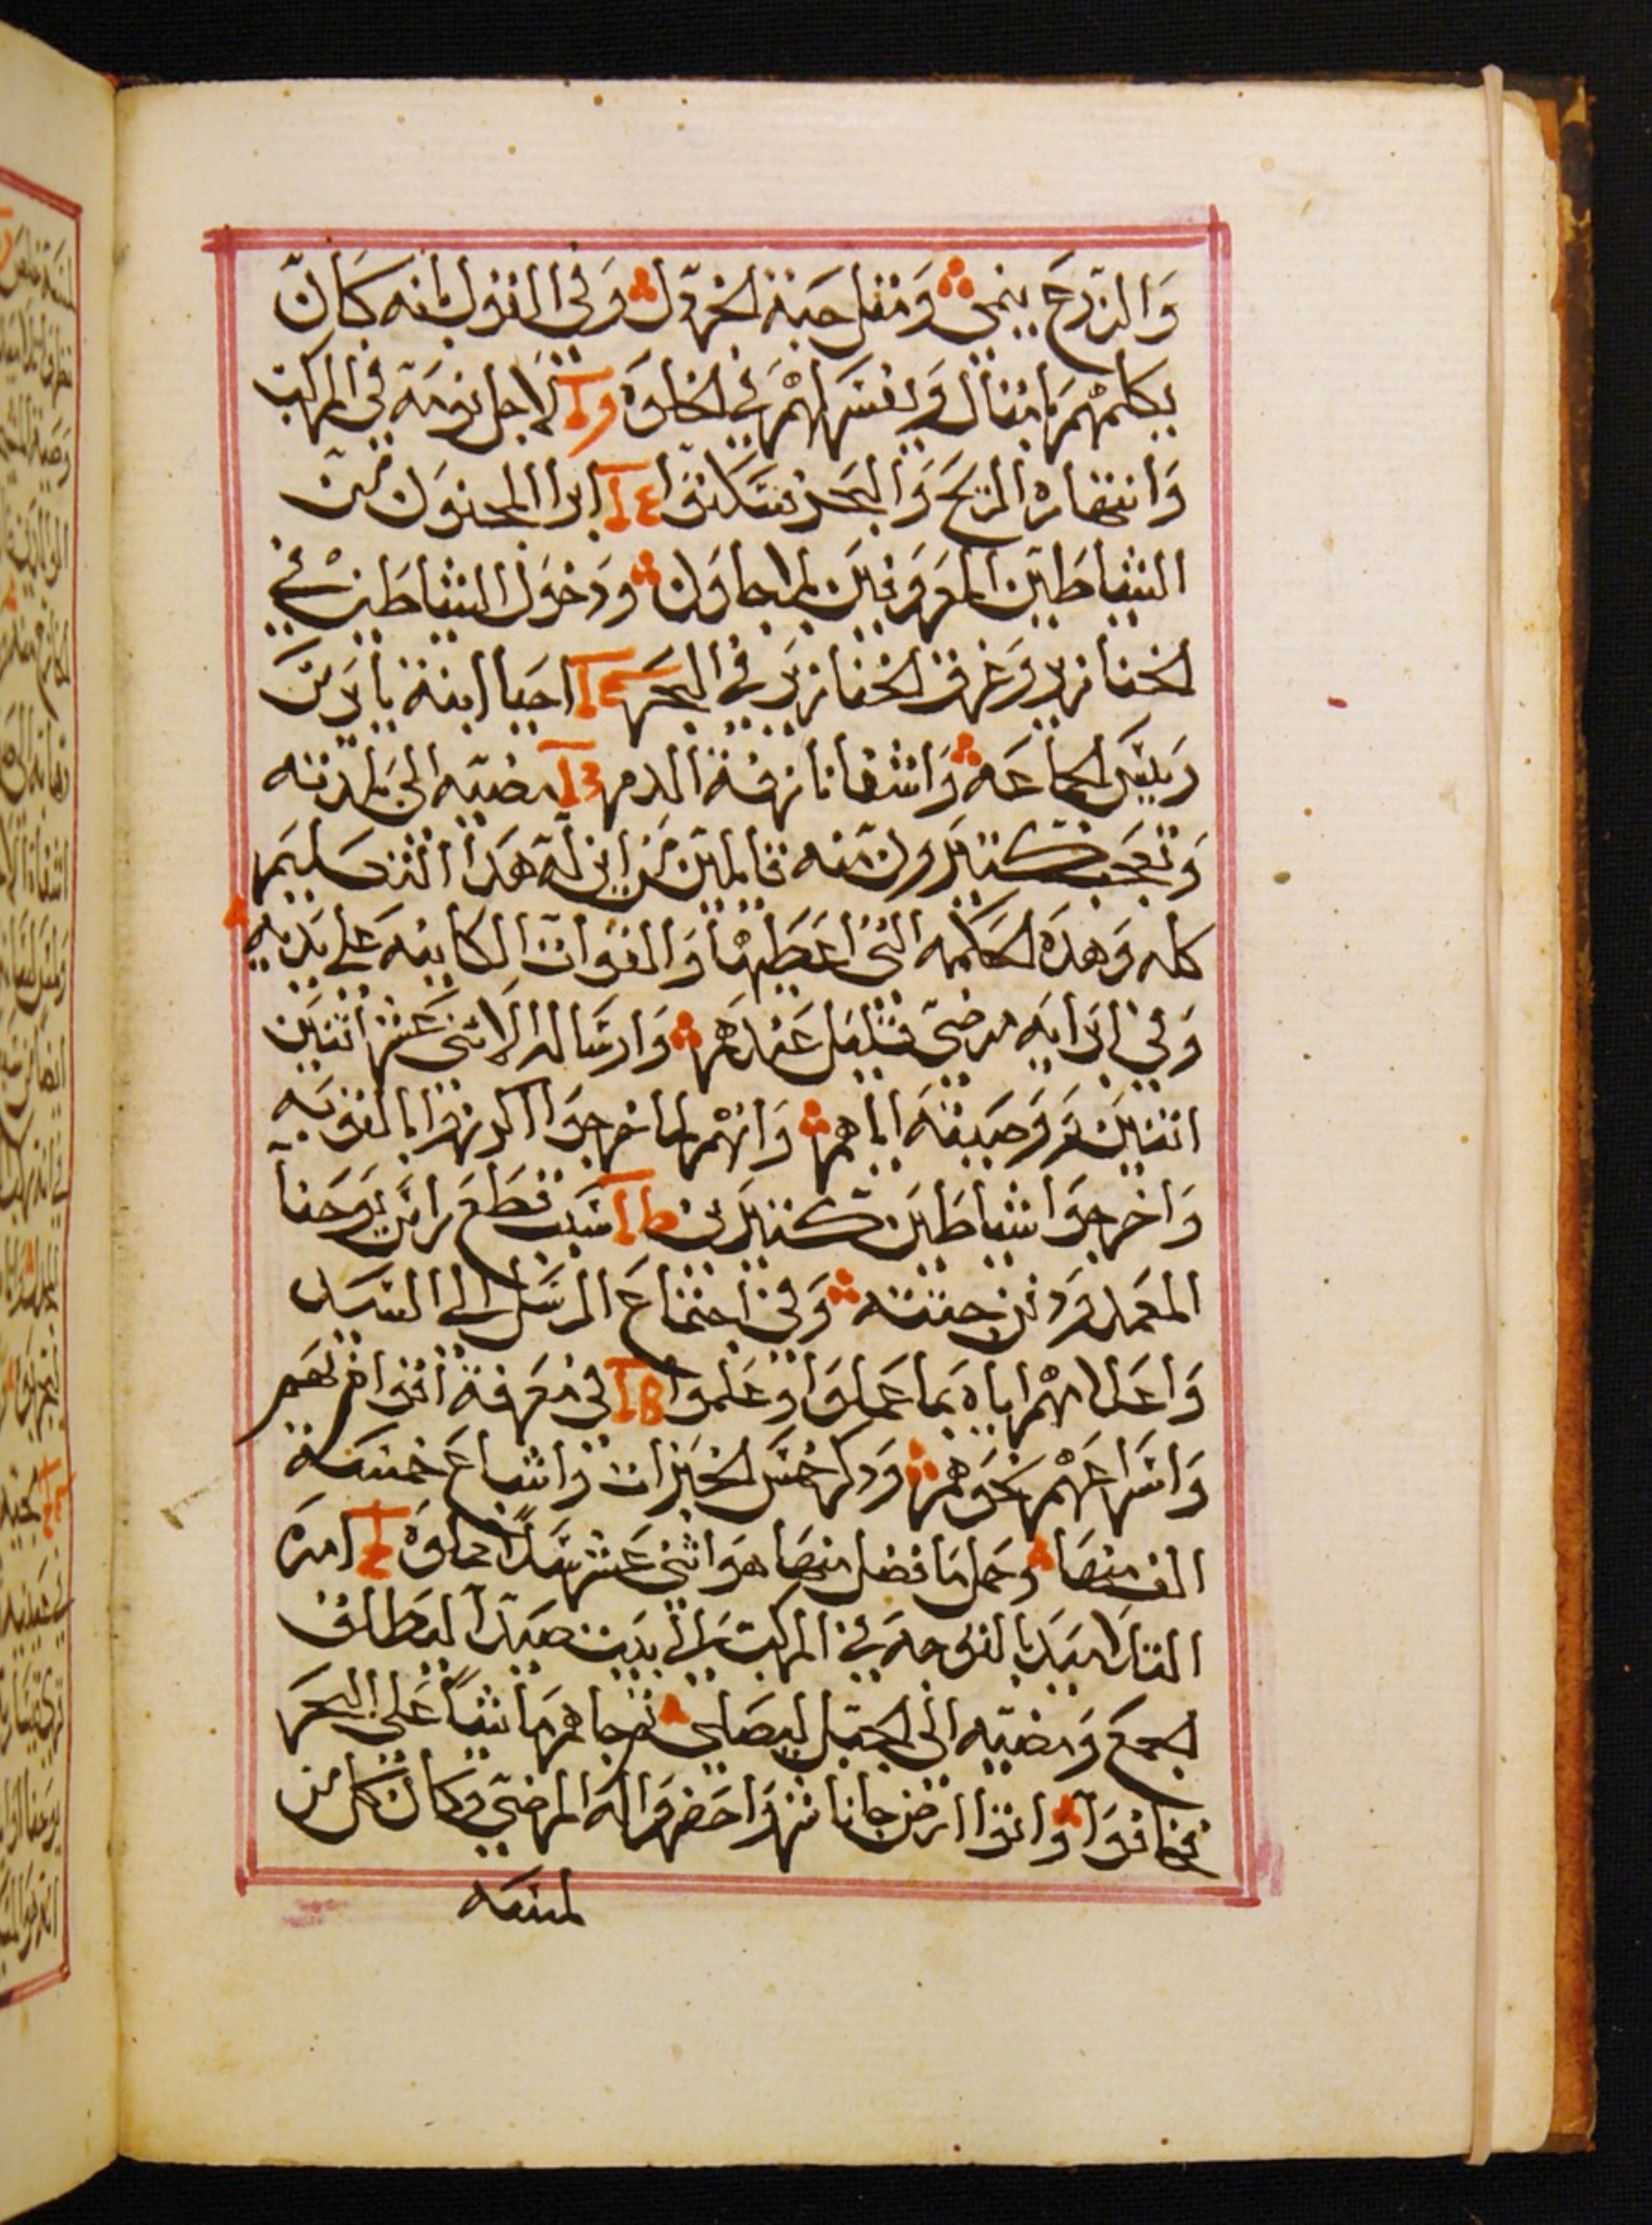 وَالزرع ينمى وَمثل حَبة الخردل وَفي القول بانه كَان
يكلمهم بامثال وَيفسر لهم في الخلوه لاجل نومَه في المركب
وَانتهاره الريح وَالبحر فسَكنوا ابرا المجنون من
الشياطين المعروفين بلاجاون ودخول الشياطين في
الخنازير وغرق الخنازير في البحر احيا ابنة يايرس
رييس الجماعه وَاشفا نازفة الدم مضيه الى بلدته
وَتعجب كتيرون منه قايلين من اين له هدا التعليم
كله وَهده الحكمه التي اعطيها وَالقوات الكاينه على يديه
وَفي ابرايه مرضى قليل عندهم وَارساله الاثنى عشر اثنين
اثنين وَوصيته اياهم وَانهم لما خرجوا اكرزوا بالتوبه
وَاخرجوا شياطين كتيرين سَبب قطع راس يوحنا
المعمد ودفن جثته وَفي اجتماع الرسل الى السَيد
وَاعلامهم اياه بما عملوا وعلموا في معرفة اقوام بهم
وَاسراعهم نحوهم وَدكر خمس الخبزات واشباع خمسة
الف منها وحمل ما فضل منها هو اثنى عشر سلاً مملوه امره
التلاميد بالتوجه في المركب الى بيت صيدا ليطلق
الجمع وَمضيه الى الجبل ليصلى ثم جاهم ماشياً على البحر
فخافوا وَاتوا ارض جاناشر وَاحضروا له المرضى وكان كل من
لمسه